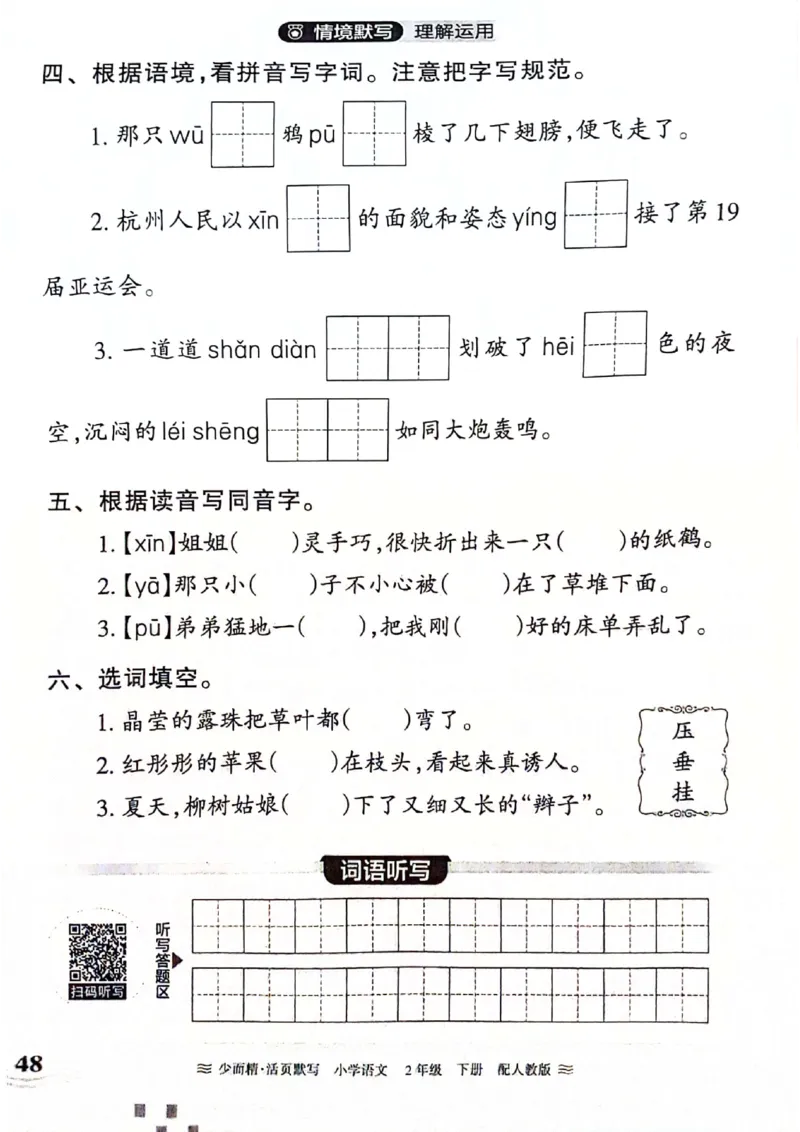 情境默写 理解运用
四、根据语境,看拼音写字词。注意把字写规范。
1. 那只wū 鸦pū 棱了几下翅膀,便飞走了。
2. 杭州人民以xīn 的面貌和姿态yíng 接了第19
届亚运会。
3. 一道道shǎn diàn 划破了hēi 色的夜
空,沉闷的léi shēng 如同大炮轰鸣。
五、根据读音写同音字。
1.【xīn】姐姐( )灵手巧,很快折出来一只( )的纸鹤。
2.【yā】那只小( )子不小心被( )在了草堆下面。
3.【pū】弟弟猛地一( ),把我刚( )好的床单弄乱了。
六、选词填空。
1. 晶莹的露珠把草叶都( )弯了。
2. 红彤彤的苹果( )在枝头,看起来真诱人。
3. 夏天,柳树姑娘( )下了又细又长的“辫子”。
压
垂
挂
词语听写
听写答题区
扫码听写
48
少而精·活页默写 小学语文 2年级 下册 配人教版